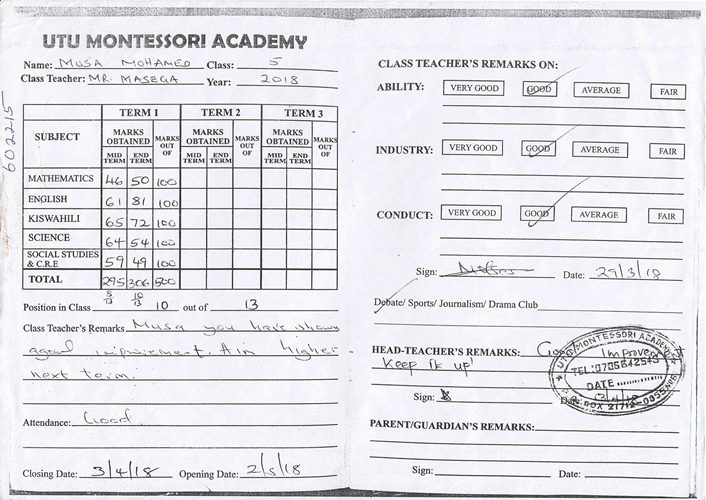 UTU MONTESSORI ACADEMY
Name: MUSA MOHAMED Class: 5
Class Teacher: MR. MASEGA Year: 2018
602215
SUBJECT TERM 1 TERM 2 TERM 3
MARKS OBTAINED MARKS OUT OF MARKS OBTAINED MARKS OUT OF MARKS OBTAINED MARKS OUT OF
MID TERM END TERM MID TERM END TERM MID TERM END TERM
MATHEMATICS 46 50 100
ENGLISH 61 81 100
KISWAHILI 65 72 100
SCIENCE 64 54 100
SOCIAL STUDIES & C.R.E 59 49 100
TOTAL 295 306 500
8/13 10/13
Position in Class 10 out of 13
Class Teacher's Remarks Musa you have shown
a good improvement. Aim higher
next term.
Attendance: Good.
Closing Date: 3/4/18 Opening Date: 2/5/18
CLASS TEACHER'S REMARKS ON:
ABILITY: VERY GOOD GOOD AVERAGE FAIR
INDUSTRY: VERY GOOD GOOD AVERAGE FAIR
CONDUCT: VERY GOOD GOOD AVERAGE FAIR
Sign: Date: 29/3/18
Debate/ Sports/ Journalism/ Drama Club
HEAD-TEACHER'S REMARKS: Good Improvement
Keep it up!
Sign: Date: 3/4/18
UTU MONTESSORI ACADEMY
TEL: 0705642543
DATE
P.O. BOX 21712-00
PARENT/GUARDIAN'S REMARKS:
Sign: Date: